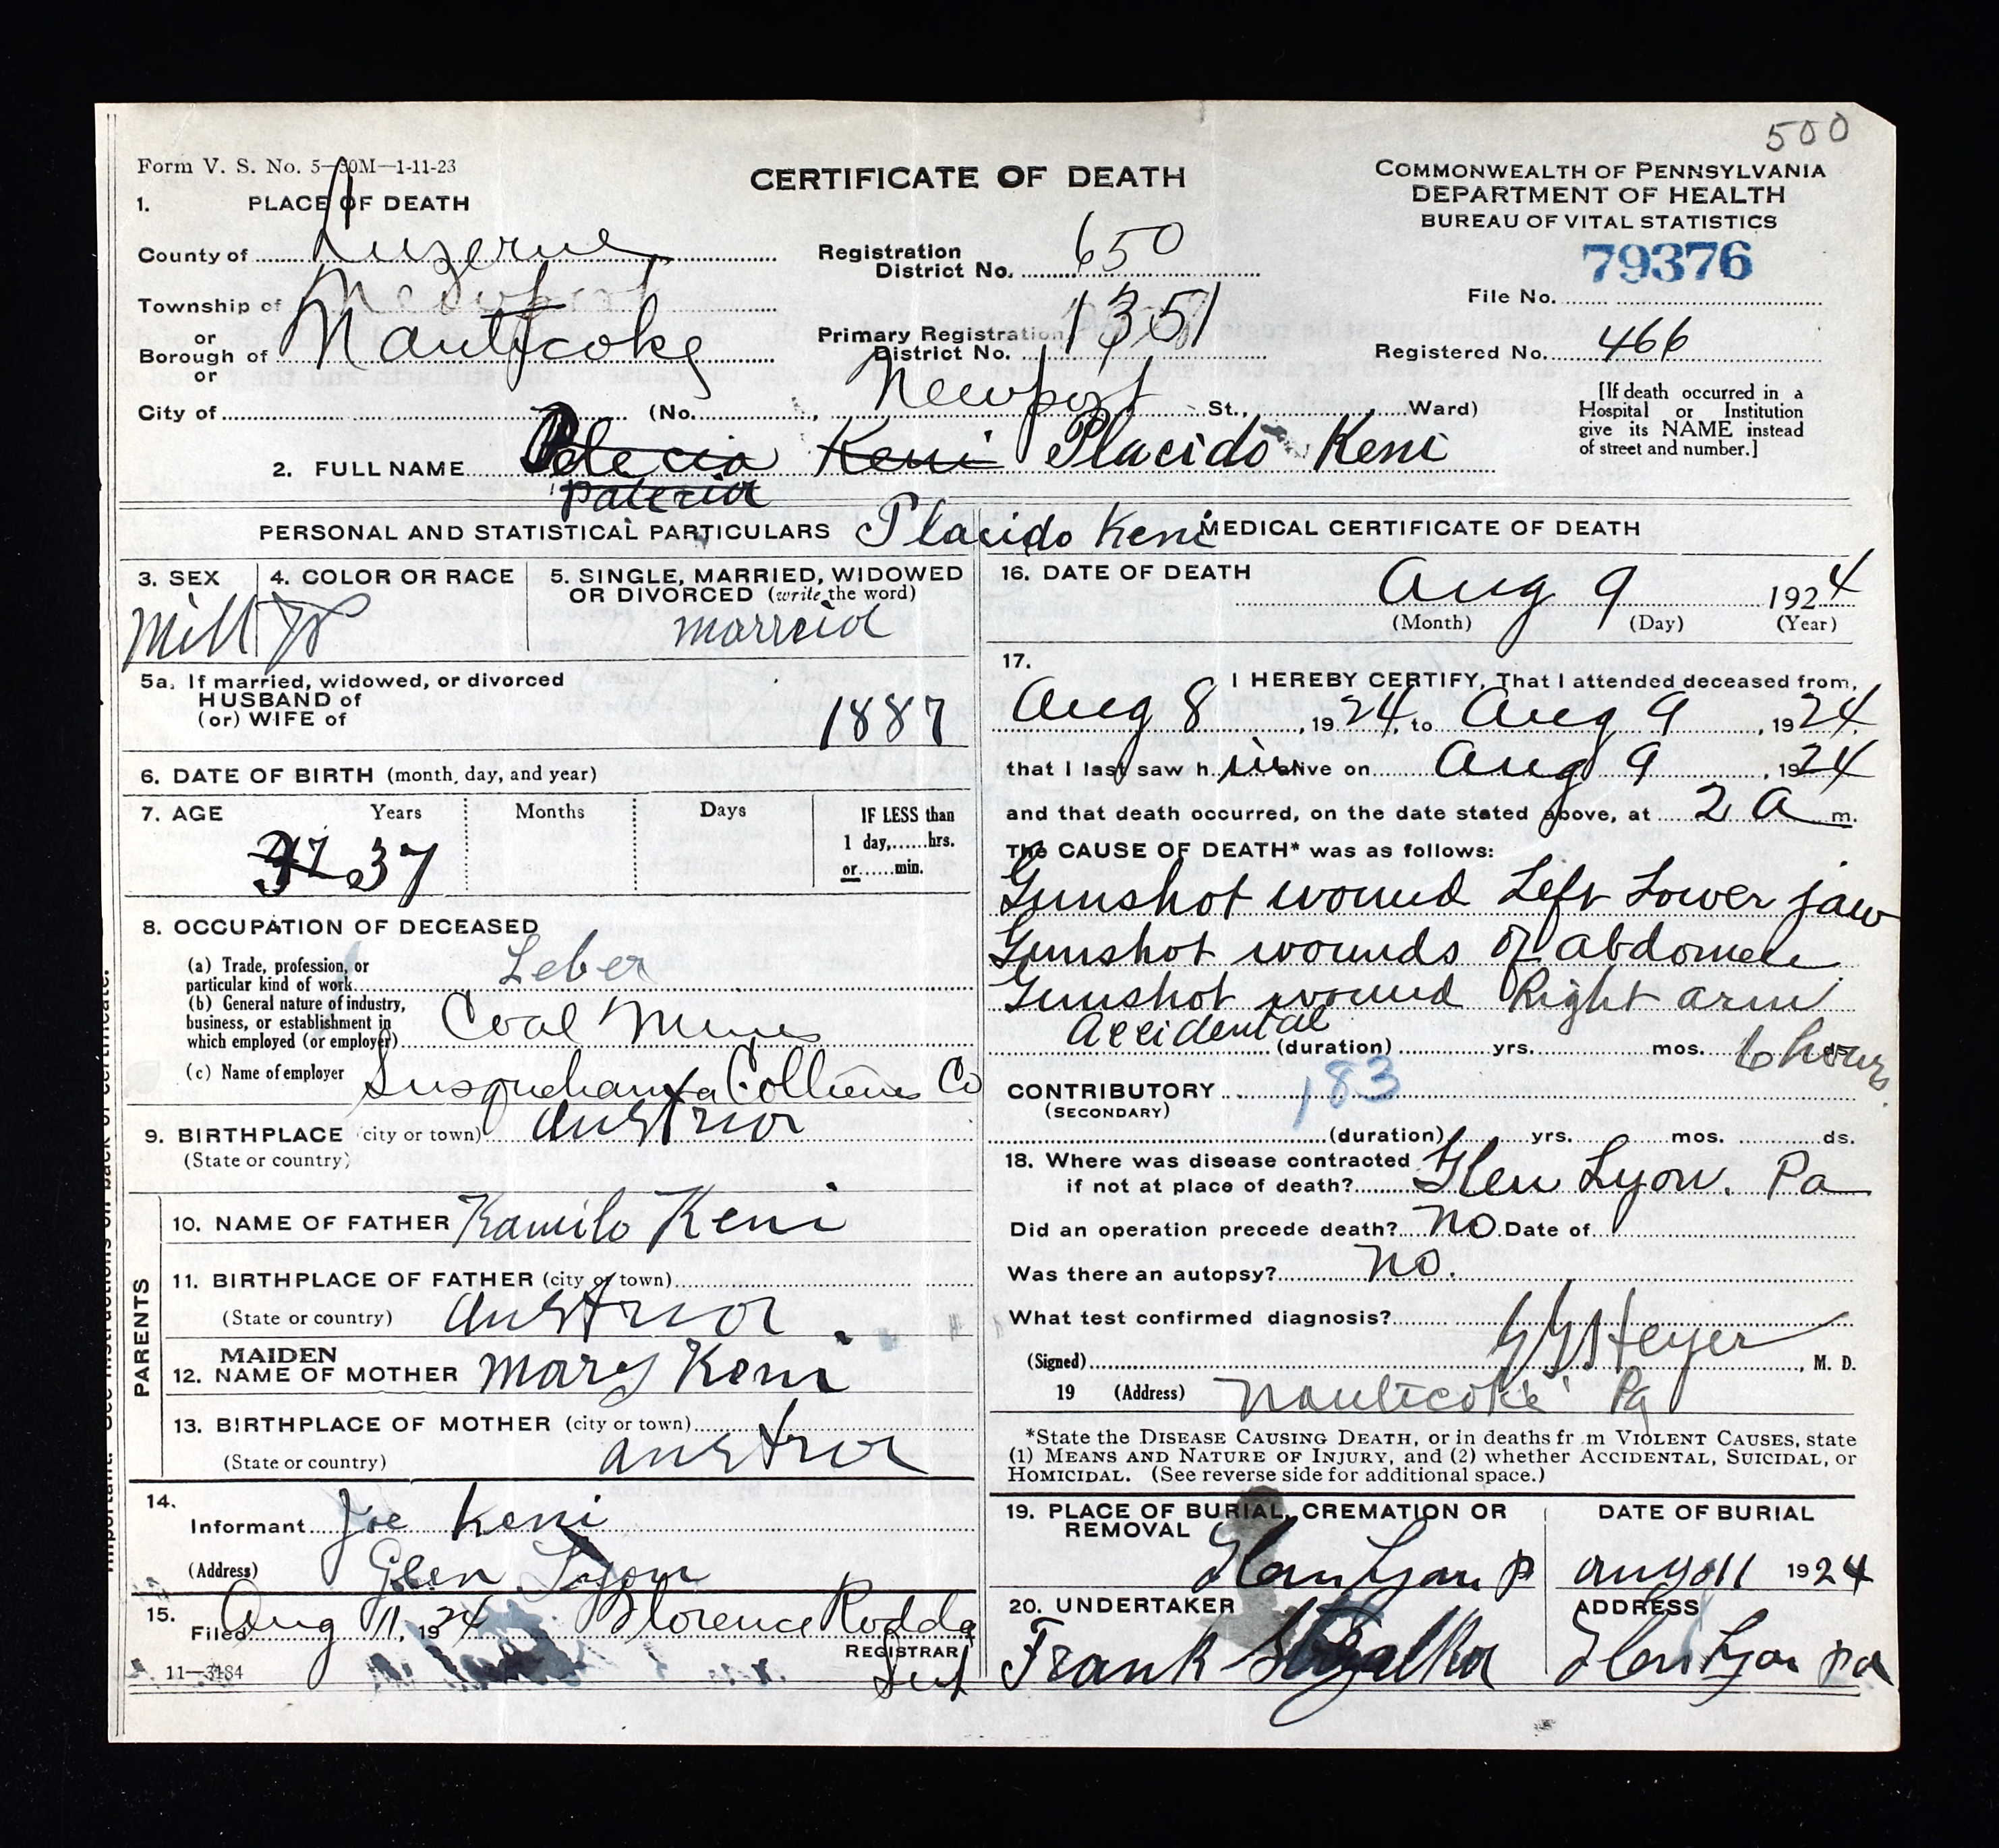 500
Form V. S. No. 5—50M—1-11-23
CERTIFICATE OF DEATH
COMMONWEALTH OF PENNSYLVANIA
DEPARTMENT OF HEALTH
BUREAU OF VITAL STATISTICS
1. PLACE OF DEATH
County of Luzerne
Registration District No. 650
79376
File No.
Township of Newport
or
Borough of Nanticoke
Primary Registration District No. 1351
Registered No. 466
or
City of (No. , Newport St., Ward)
[If death occurred in a Hospital or Institution give its NAME instead of street and number.]
2. FULL NAME Keni Placido Keni
PERSONAL AND STATISTICAL PARTICULARS Placido Keni
3. SEX Mill
4. COLOR OR RACE W
5. SINGLE, MARRIED, WIDOWED OR DIVORCED (write the word)
marreid
5a. If married, widowed, or divorced
HUSBAND of
(or) WIFE of
1887
6. DATE OF BIRTH (month, day, and year)
7. AGE Years Months Days IF LESS than 1 day,......hrs. or......min.
37
8. OCCUPATION OF DECEASED
(a) Trade, profession, or particular kind of work Leber
(b) General nature of industry, business, or establishment in which employed (or employer) Coal Mines
(c) Name of employer Susquehanna Collieries Co
9. BIRTHPLACE (city or town) Austria
(State or country)
PARENTS
10. NAME OF FATHER Kamilo Keni
11. BIRTHPLACE OF FATHER (city or town)
(State or country) Austria
12. MAIDEN NAME OF MOTHER Mary Keni
13. BIRTHPLACE OF MOTHER (city or town)
(State or country) Austria
14. Informant Joe Keni
(Address) Glen Lyon
15. Filed Aug 11, 1924 Florence Rodda
REGISTRAR
11—3184
MEDICAL CERTIFICATE OF DEATH
16. DATE OF DEATH Aug 9 1924
(Month) (Day) (Year)
17. I HEREBY CERTIFY, That I attended deceased from,
Aug 8, 1924, to Aug 9, 1924
that I last saw him alive on Aug 9, 1924
and that death occurred, on the date stated above, at 2 A m.
The CAUSE OF DEATH* was as follows:
Gunshot wound Left Lower jaw
Gunshot wounds of abdomen
Gunshot wound Right arm
Accidental
(duration) yrs. mos. ds. 6 hours
CONTRIBUTORY 183
(SECONDARY)
(duration) yrs. mos. ds.
18. Where was disease contracted
if not at place of death? Glen Lyon. Pa
Did an operation precede death? No. Date of
Was there an autopsy? No.
What test confirmed diagnosis?
(Signed) , M. D.
19 (Address) Nanticoke Pa
*State the DISEASE CAUSING DEATH, or in deaths fr m VIOLENT CAUSES, state
(1) MEANS AND NATURE OF INJURY, and (2) whether ACCIDENTAL, SUICIDAL, or
HOMICIDAL. (See reverse side for additional space.)
19. PLACE OF BURIAL, CREMATION OR REMOVAL
Glen Lyon P
DATE OF BURIAL
Aug 11 1924
20. UNDERTAKER
Frank
ADDRESS
Glen Lyon Pa